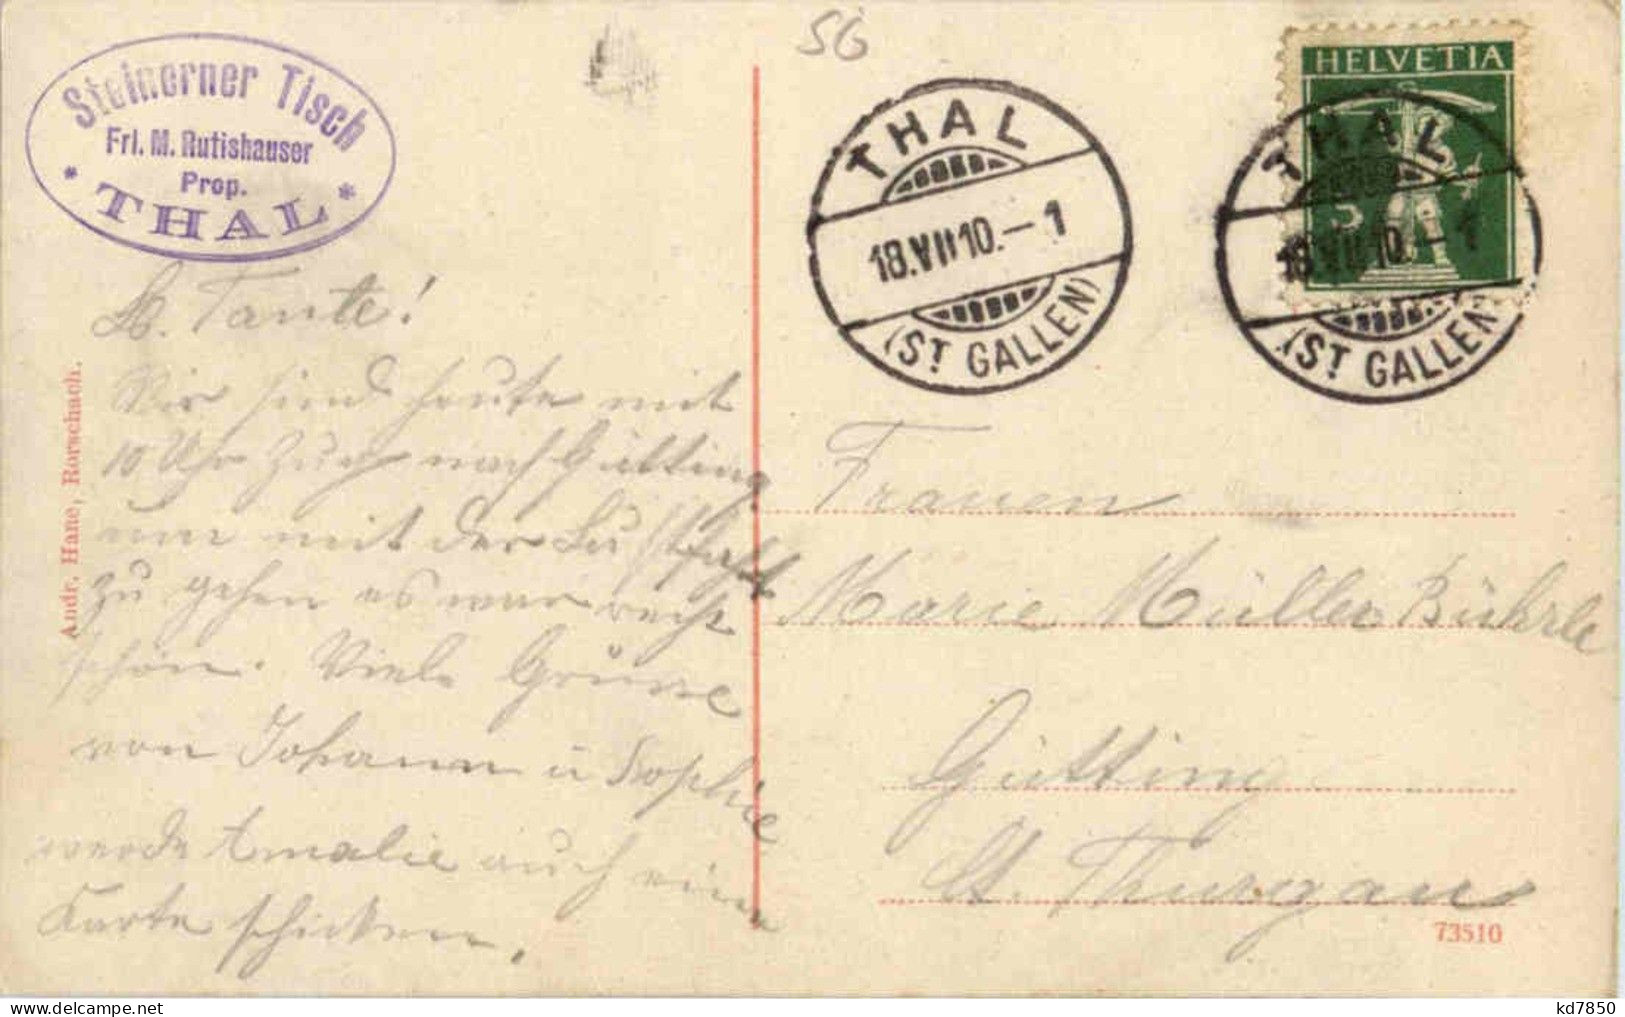 Steinerner Tisch
Frl. M. Rutishauser
Prop.
* THAL *
56
HELVETIA
5
THAL
18.VII10.–1
(ST GALLEN)
THAL
18.VII10.–1
(ST GALLEN)
Andr. Hane, Rorschach.
Lb. Tante!
Wir sind heute mit
10 Uhr Zug nach Gütting
um mit der
zu gehen es war recht
schön. Viele Grüsse
von Johann u Sophie
werde Amalie auch eine
Karte schicken.
Frauen
Marie Müller Bührle
Gütting
Ct. Thurgau
73510
kd7850